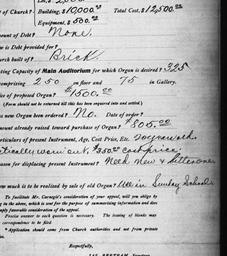 of Church? Building, $10,000.00 Total Cost, $12,500.00
Equipment, $500.00
Amount of Debt? None.
is Debt provided for?
Church built of? Brick
Seating Capacity of Main Auditorium for which Organ is desired? 325
comprising 250 on floor and 75 in Gallery.
Price of proposed Organ? $1500.00
(Form should not be returned till this has been enquired into and settled.)
new Organ been ordered? No. Date of order?
Amount already raised toward purchase of Organ? $805.00
Particulars of present Instrument, Age, Cost Price, Etc.
worn out, $350.00 cost price.
Reason for displacing present Instrument? Need new &
much is to be realized by sale of old Organ? Use in Sunday School
To facilitate Mr. Carnegie's consideration of your appeal, will you oblige by
in the above, which is used for the purpose of summarizing information and does
imply favorable consideration of the appeal.
Precise answer to each question is necessary. The issuing of blanks may
correspondence to be filed
Application should come from Church authorities and not from private
Respectfully,
JAS. BERTRAM,